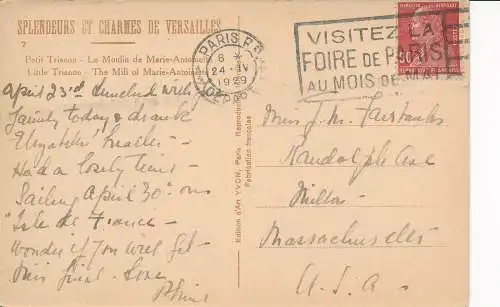 SPLENDEURS ET CHARMES DE VERSAILLES
7
Petit Trianon - Le Moulin de Marie-Antoinette
Little Trianon - The Mill of Marie-Antoinette
PARIS
6
24 - IV
1929
VISITEZ LA
FOIRE DE PARIS
AU MOIS DE MAI
April 23rd Lunched with
family today & drank
health -
Had a lovely time -
Sailing April 30th on
"Isle de France"
Wonder if you will get
this first. Love
Edition d'Art YVON, Paris
Fabrication française
Miss J. M. Fairbanks
Randolph Ave
Milton
Massachusetts
U.S.A.